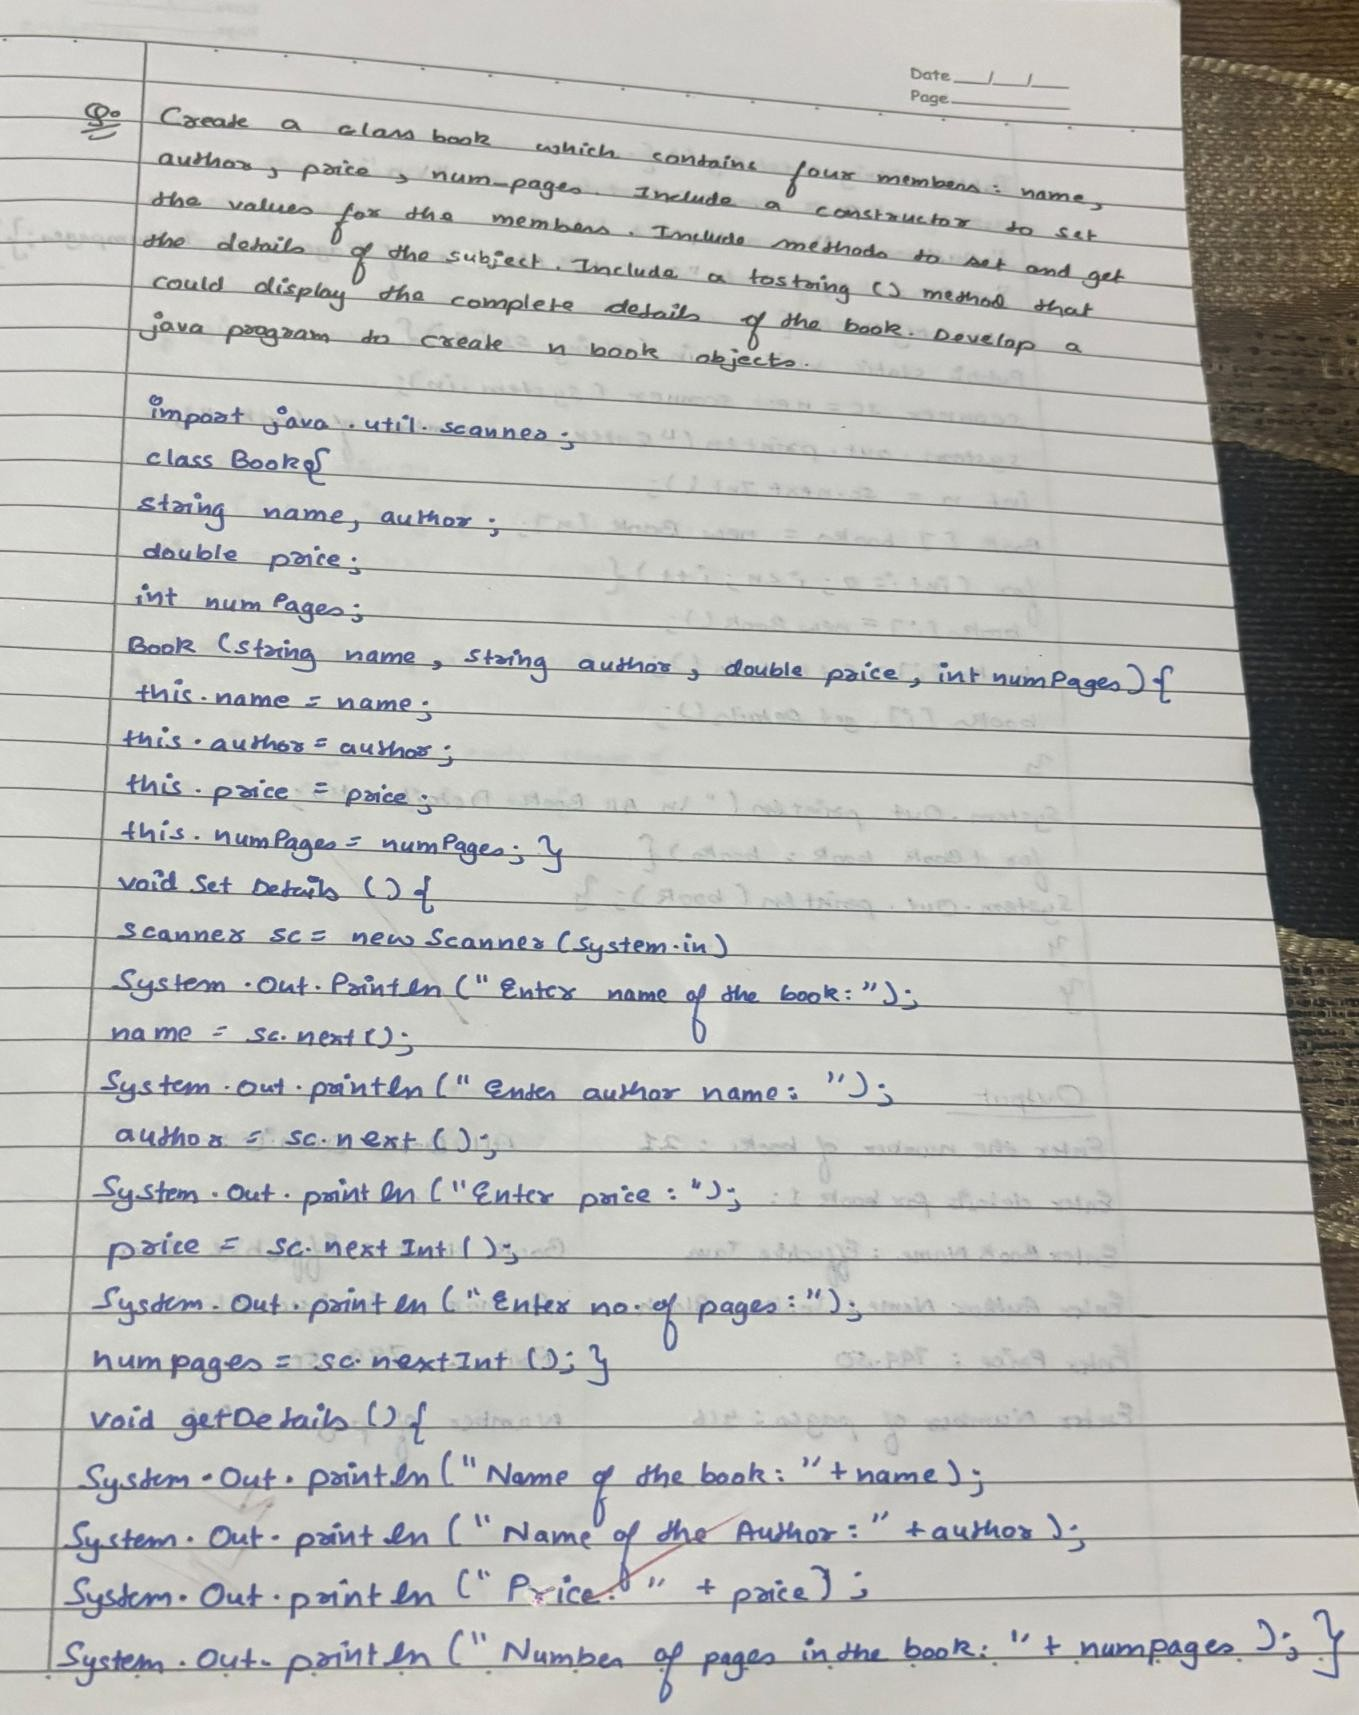 Date __/__/__
Page
Q.
Create a class book which contains four members: name,
author, price, num-pages. Include a constructor to set
the values for the members. Include methods to set and get
the details of the subject. Include a tostring () method that
could display the complete details of the book. Develop a
java program to create n book objects.
import java.util.scanner;
class Book{
string name, author;
double price;
int numPages;
Book (string name, string author, double price, int numPages) {
this.name = name;
this.author = author;
this.price = price;
this.numPages = numPages; }
void Set Details () {
scanner sc = new Scanner (System.in)
System.Out.Println (" Enter name of the book: ");
name = sc.next ();
System.out.println (" Enter author name: ");
author = sc.next ();
System.Out.println ("Enter price: ");
price = sc.next Int ();
System.Out.println (" Enter no. of pages: ");
numpages = sc.nextInt (); }
void getDetails () {
System.Out.println (" Name of the book: " + name);
System.Out.println (" Name of the Author: " + author);
System.Out.println (" Price: " + price);
System.Out.println (" Number of pages in the book: " + numpages ); }